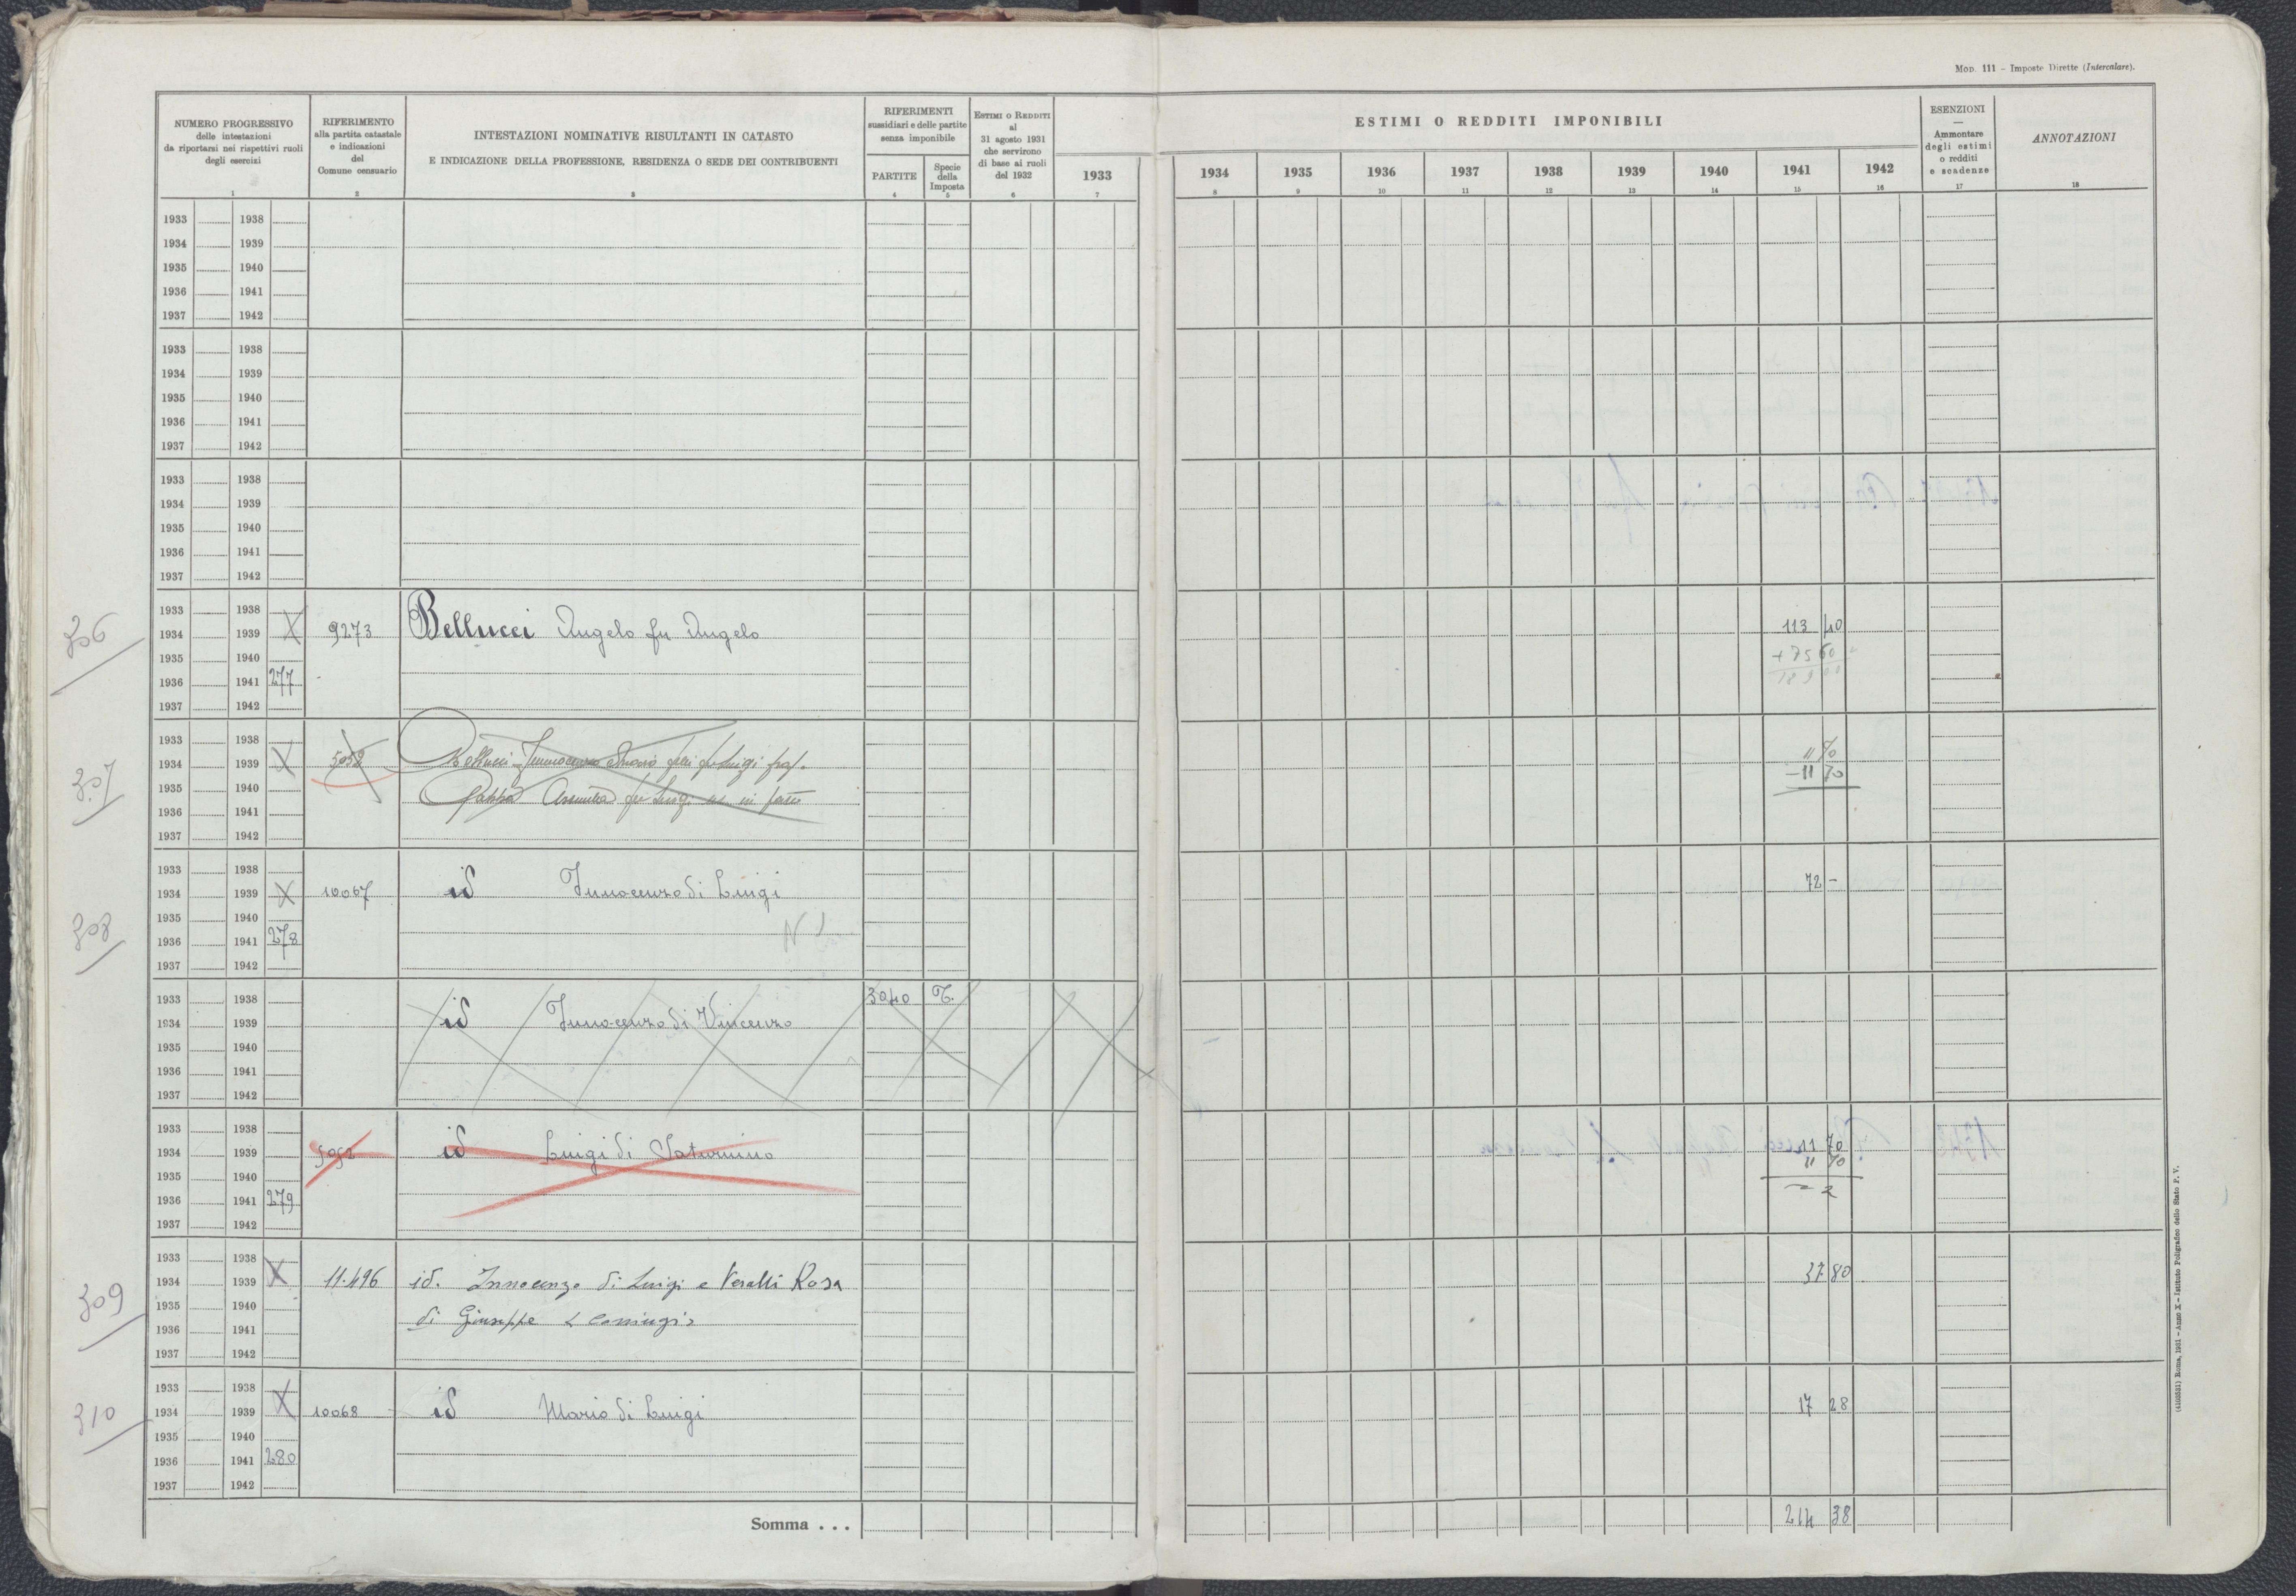 Mod. 111 – Imposte Dirette (Intercalare).
NUMERO PROGRESSIVO
delle intestazioni
da riportarsi nei rispettivi ruoli
degli esercizi
1
RIFERIMENTO
alla partita catastale
e indicazioni
del
Comune censuario
2
INTESTAZIONI NOMINATIVE RISULTANTI IN CATASTO
E INDICAZIONE DELLA PROFESSIONE, RESIDENZA O SEDE DEI CONTRIBUENTI
3
RIFERIMENTI
sussidiari e delle partite
senza imponibile
PARTITE
4
Specie
della
Imposta
5
ESTIMI O REDDITI
al
31 agosto 1931
che servirono
di base ai ruoli
del 1932
6
ESTIMI O REDDITI IMPONIBILI
1933
7
1934
8
1935
9
1936
10
1937
11
1938
12
1939
13
1940
14
1941
15
1942
16
ESENZIONI
—
Ammontare
degli estimi
o redditi
e scadenze
17
ANNOTAZIONI
18
1933 1938
1934 1939
1935 1940
1936 1941
1937 1942
1933 1938
1934 1939
1935 1940
1936 1941
1937 1942
1933 1938
1934 1939
1935 1940
1936 1941
1937 1942
306
1933 1938
1934 1939 X 9273 Bellucci Angelo fu Angelo 113 40
1935 1940 + 75 60
1936 1941 277 189
1937 1942
307
1933 1938
1934 1939 X 5052 Bellucci Innocenzo fu Luigi 11 70
1935 1940 fu Luigi – 11 70
1936 1941
1937 1942
308
1933 1938
1934 1939 X 10067 id Innocenzo di Luigi 72 –
1935 1940
1936 1941 278
1937 1942
1933 1938 3040 T.
1934 1939 id Innocenzo di Vincenzo
1935 1940
1936 1941
1937 1942
1933 1938
1934 1939 5052 id Luigi di Saturnino 11 70
1935 1940 11 70
1936 1941 279
1937 1942
309
1933 1938
1934 1939 X 11.496 id. Innocenzo di Luigi e Veralli Rosa 37 80
1935 1940
1936 1941 di Giuseppe coniugi
1937 1942
310
1933 1938
1934 1939 X 10068 id Mario di Luigi 17 28
1935 1940
1936 1941 280
1937 1942
Somma . . . 214 38
(4103521) Roma, 1931 – Anno X – Istituto Poligrafico dello Stato P. V.